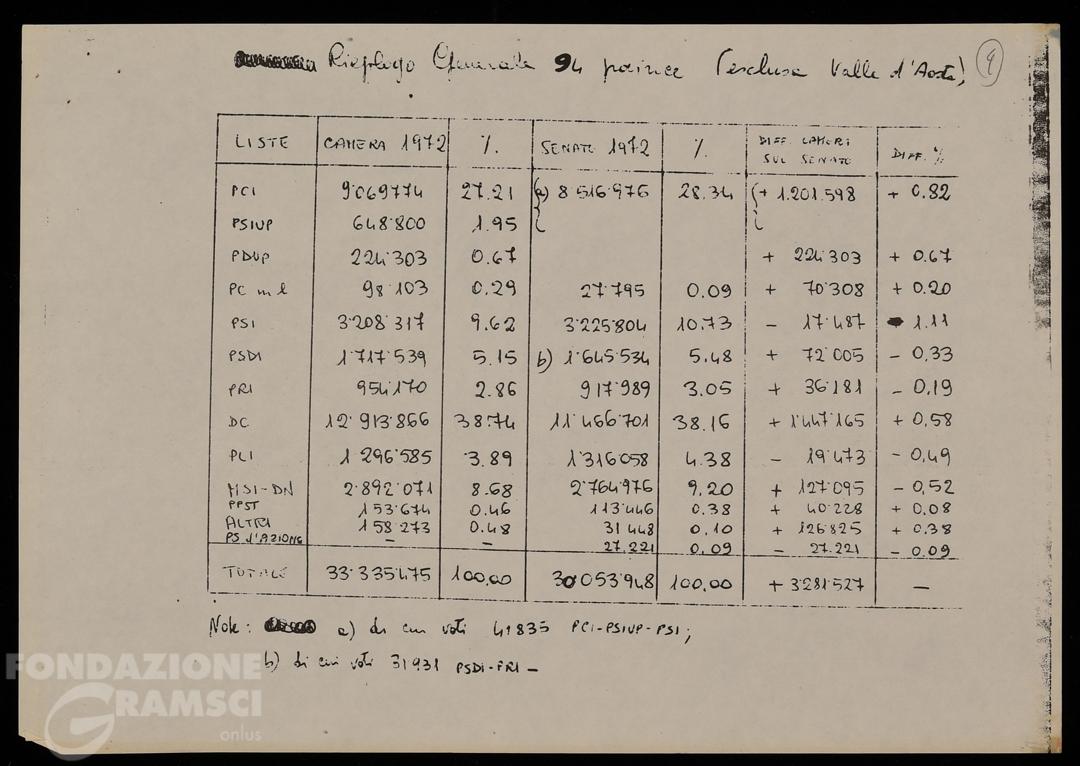 Riepilogo Generale 94 province (esclusa Valle d'Aosta) 9
LISTE CAMERA 1972 % SENATO 1972 % DIFF. CAMERA SUL SENATO DIFF. %
PCI 9.069774 27.21 (a) 8 516.976 28.34 (+ 1.201.598 + 0.82
PSIUP 648.800 1.95
PDUP 224.303 0.67 + 224.303 + 0.67
PC m l 98.103 0.29 27.795 0.09 + 70.308 + 0.20
PSI 3.208.317 9.62 3.225.804 10.73 - 17.487 - 1.11
PSDI 1.717.539 5.15 b) 1.645.534 5.48 + 72.005 - 0.33
PRI 954.170 2.86 917.989 3.05 + 36.181 - 0.19
DC 12.913.866 38.74 11.466.701 38.16 + 1.447.165 + 0,58
PLI 1 296.585 3.89 1.316.058 4.38 - 19.473 - 0,49
MSI-DN 2.892.071 8.68 2.764.976 9.20 + 127.095 - 0,52
PPST 153.674 0.46 113.446 0.38 + 40.228 + 0.08
ALTRI 158.273 0.48 31 448 0.10 + 126.825 + 0.38
PS d'AZIONE - - 27.221 0.09 - 27.221 - 0.09
TOTALE 33.335.475 100,00 30 053.948 100,00 + 3.281.527 -
Note: a) di cui voti 41835 PCI-PSIUP-PSI;
b) di cui voti 31931 PSDI-PRI -
FONDAZIONE
GRAMSCI
onlus